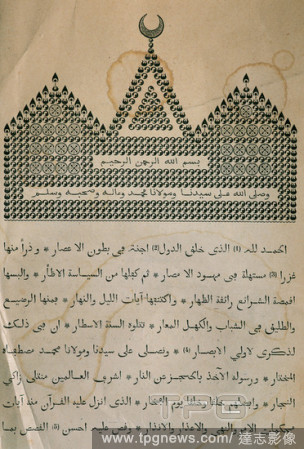 بسم الله الرحمن الرحيم
وصلى الله على سيدنا ومولانا محمد وءاله وصحبه وسلم
الحمد لله (1) الذى خلق الدول (2) اجنة فى بطون الاعصار * وذرأ منها
غررا (3) مستهلة فى مهود الامصار * ثم كفلها من السياسة الاظآر * والبسها
اقمصة الشرائع رائقة الطهار * واكتنفتها آيات الليل والنهار * فمنها الرضيع
والطليق فى الشباب والكهل المعار * تتلوه السنة الاسطار * ان فى ذلك
لذكرى لاولى الابصار (4) * ونصلى على سيدنا ومولانا محمد مصطفاه
المختار * ورسوله الآخذ بالحجز عن النار * اشرف العالمين
الذى انزل عليه القرآن منه آيات
وقص عليه احسن (5) القصص بما
TPG
www.tpgnews.com/達志影像